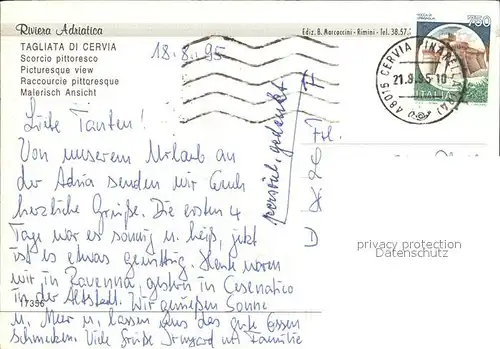 Riviera Adriatica
TAGLIATA DI CERVIA
Scorcio pittoresco
Picturesque view
Raccourcie pittoresque
Malerisch Ansicht
Ediz. B. Marcaccini - Rimini - Tel. 38.57
750
ITALIA
48015 CERVIA
21.8.95-10
18.8.95
Liebe Tanten!
Von unserem Urlaub an
der Adria senden wir Euch
herzliche Grüße. Die ersten 4
Tage war es sonnig u. heiß, jetzt
ist es etwas gewittrig. Heute waren
wir in Ravenna, gestern in Cesenatico
in der Altstadt. Wir genießen Sonne
u. Meer u. lassen uns das gute Essen
schmecken. Viele Grüße Irmgard u. Familie
17356
Frl.
D
privacy protection
Datenschutz